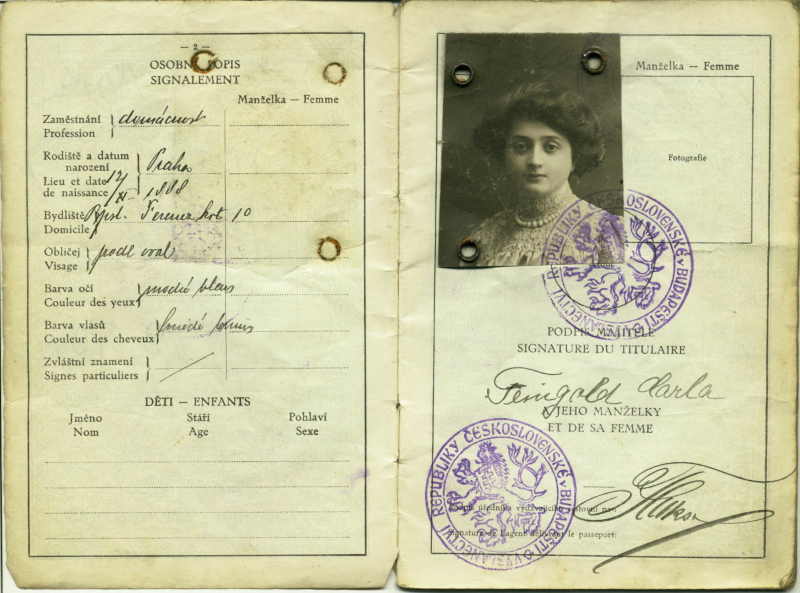 — 2 —
OSOBNÍ POPIS
SIGNALEMENT
Manželka — Femme
Zaměstnání domácnost
Profession
Rodiště a datum Praha
narození
Lieu et date 12/XI 1888
de naissance
Bydliště Bpest. Ferencz krt 10
Domicile
Obličej podl oval
Visage
Barva očí modré bleus
Couleur des yeux
Barva vlasů hnědé
Couleur des cheveux
Zvláštní znamení
Signes particuliers
DĚTI — ENFANTS
Jméno Stáří Pohlaví
Nom Age Sexe
Manželka — Femme
Fotografie
VYSLANECTVÍ REPUBLIKY ČESKOSLOVENSKÉ v BUDAPEŠTI
PODPIS MAJITELE
SIGNATURE DU TITULAIRE
Feingold Carla
A JEHO MANŽELKY
ET DE SA FEMME
VYSLANECTVÍ REPUBLIKY ČESKOSLOVENSKÉ v BUDAPEŠTI
Podpis úředníka vydávajícího cestovní pas:
Signature de l'agent délivrant le passeport: